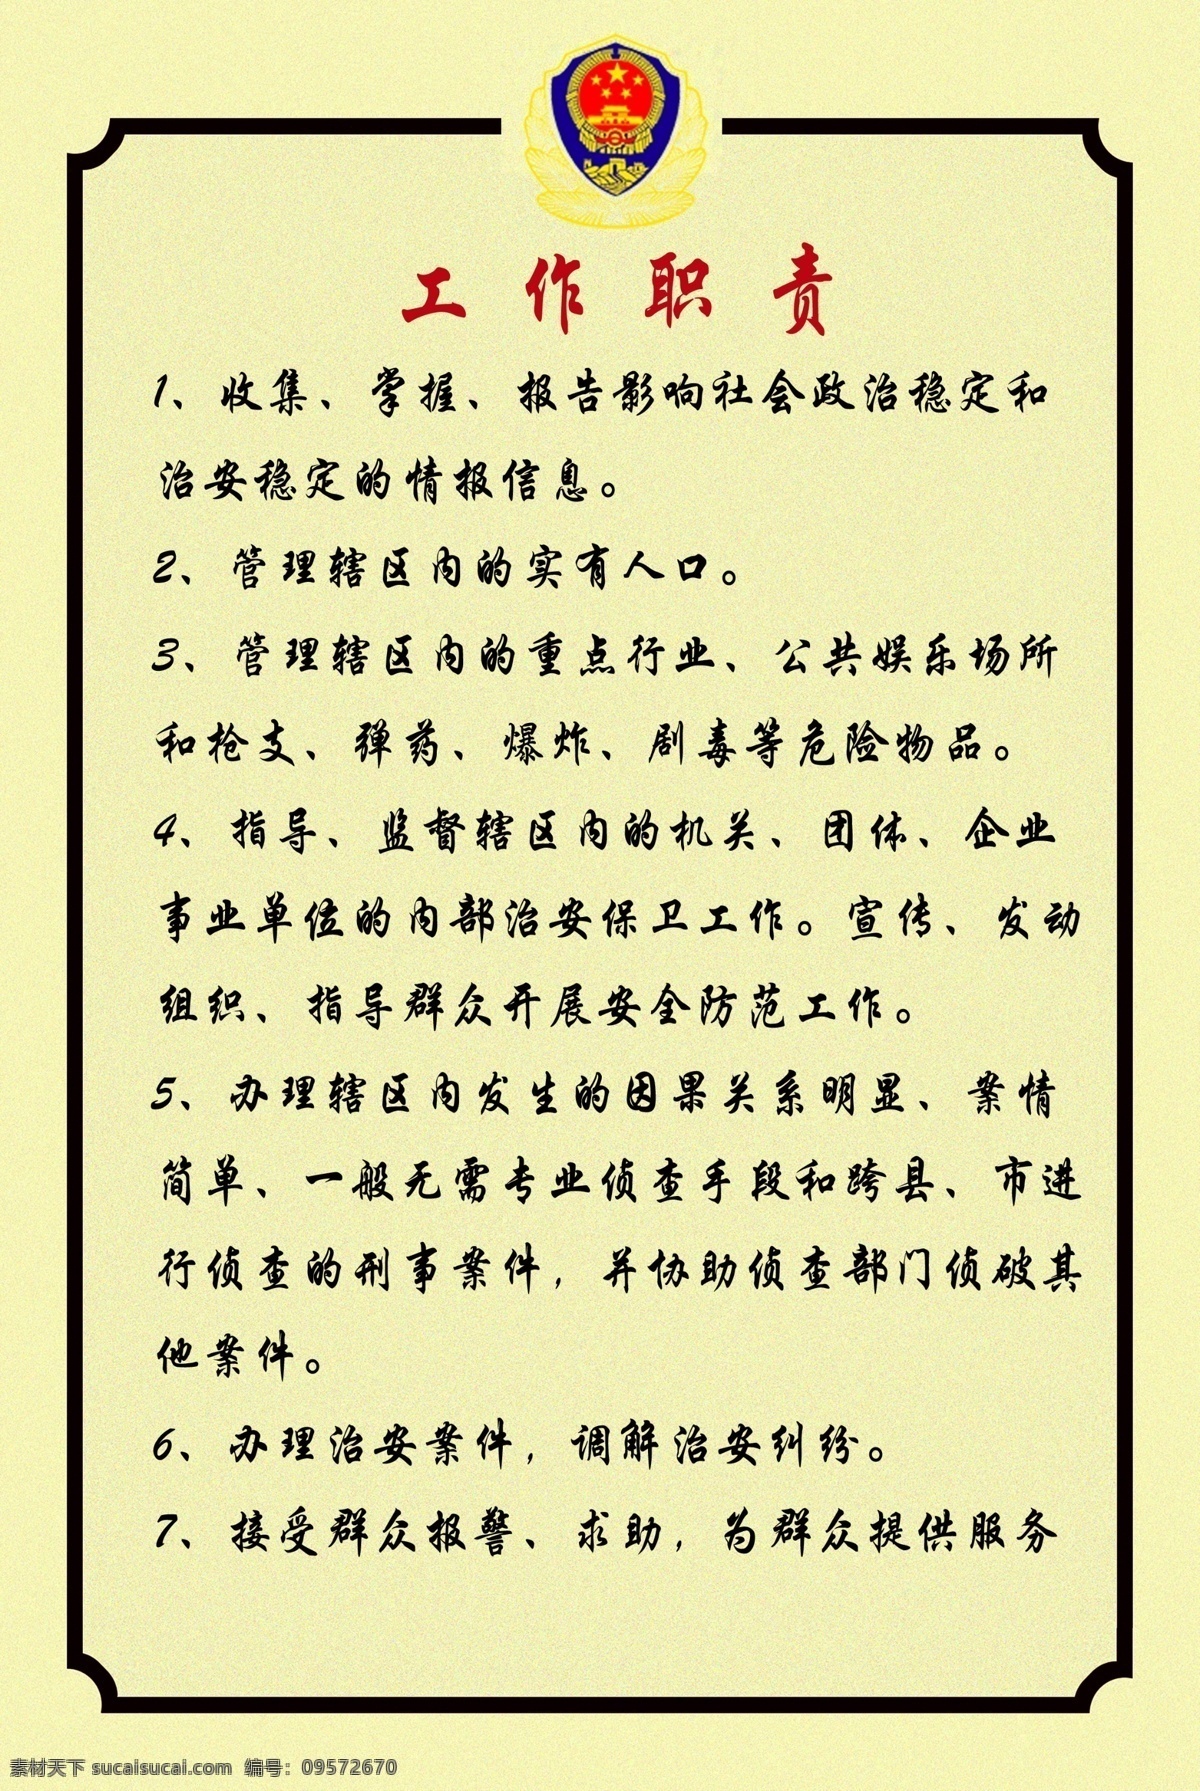 工作职责
1、收集、掌握、报告影响社会政治稳定和
治安稳定的情报信息。
2、管理辖区内的实有人口。
3、管理辖区内的重点行业、公共娱乐场所
和枪支、弹药、爆炸、剧毒等危险物品。
4、指导、监督辖区内的机关、团体、企业
事业单位的内部治安保卫工作。宣传、发动
组织、指导群众开展安全防范工作。
5、办理辖区内发生的因果关系明显、案情
简单、一般无需专业侦查手段和跨县、市进
行侦查的刑事案件，并协助侦查部门侦破其
他案件。
6、办理治安案件，调解治安纠纷。
7、接受群众报警、求助，为群众提供服务
素材天下 sucaisucai.com 编号：09572670